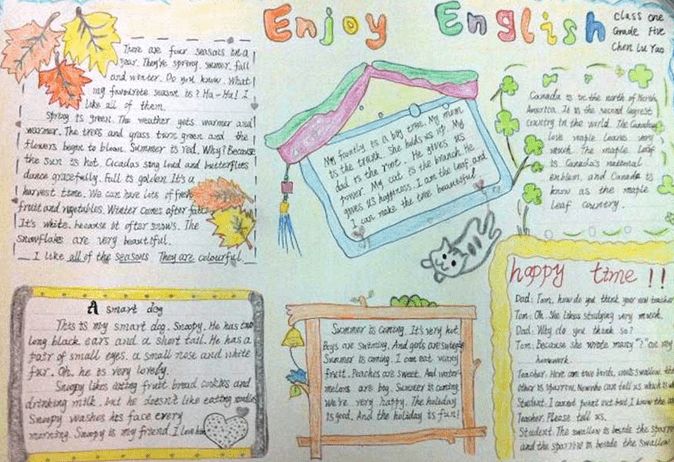 Enjoy English
Class one
Grade Five
Chen Lu Yao
There are four seasons in a
year. They're spring, summer, fall
and winter. Do you know. What
my favourite season is? Ha-Ha! I
like all of them.
Spring is green. The weather gets warmer and
warmer. The trees and grass turns green and the
flowers begin to bloom. Summer is red. Why? Because
the sun is hot. Cicadas sing loud and butterflies
dance gracefully. Fall is golden. It's a
harvest time. We can have lots of fresh
fruit and vegetables. Winter comes after fall.
It's white. because it often snows. The
snowflakes are very beautiful.
I like all of the seasons They are colourful.
My family is a big tree. My mum
is the trunk. She holds us up. My
dad is the root. He gives us
power. My cat is the branch. He
gives us happiness. I am the leaf and
I can make the tree beautiful.
Canada is in the north of North
America. It is the second largest
country in the world. The Canadian
love maple leaves very
much. The maple leaf
is Canada's national
emblem, and Canada is
know as the maple
leaf country.
A smart dog
This is my smart dog. Snoopy. He has two
long black ears and a short tail. He has a
pair of small eyes. a small nose and white
fur. Oh, he is very lovely.
Snoopy likes eating fruit bread cookies and
drinking milk. but he doesn't like eating noodles
Snoopy washes his face every
morning. Snoopy is my friend. I love him
Summer is coming. It's very hot.
Boys are swimming. And girls are
Summer is coming. I can eat many
fruit. Peaches are sweet. And water-
melons are big. Summer is coming
We're very happy. The holiday
is good. And the holiday is fun!
happy time!!
Dad: Tom, how do you think your new teacher
Tom: Oh. She likes studying very much.
Dad: Why do you think so?
Tom: Because she wrote many "?" on my
homework.
Teacher: Here are two birds, one's swallow. the
other is sparrow. Now who can tell us which is
Student: I cannot point out but I know the
Teacher: Please tell us.
Student: The swallow is beside the sparrow
and the sparrow is beside the swallow